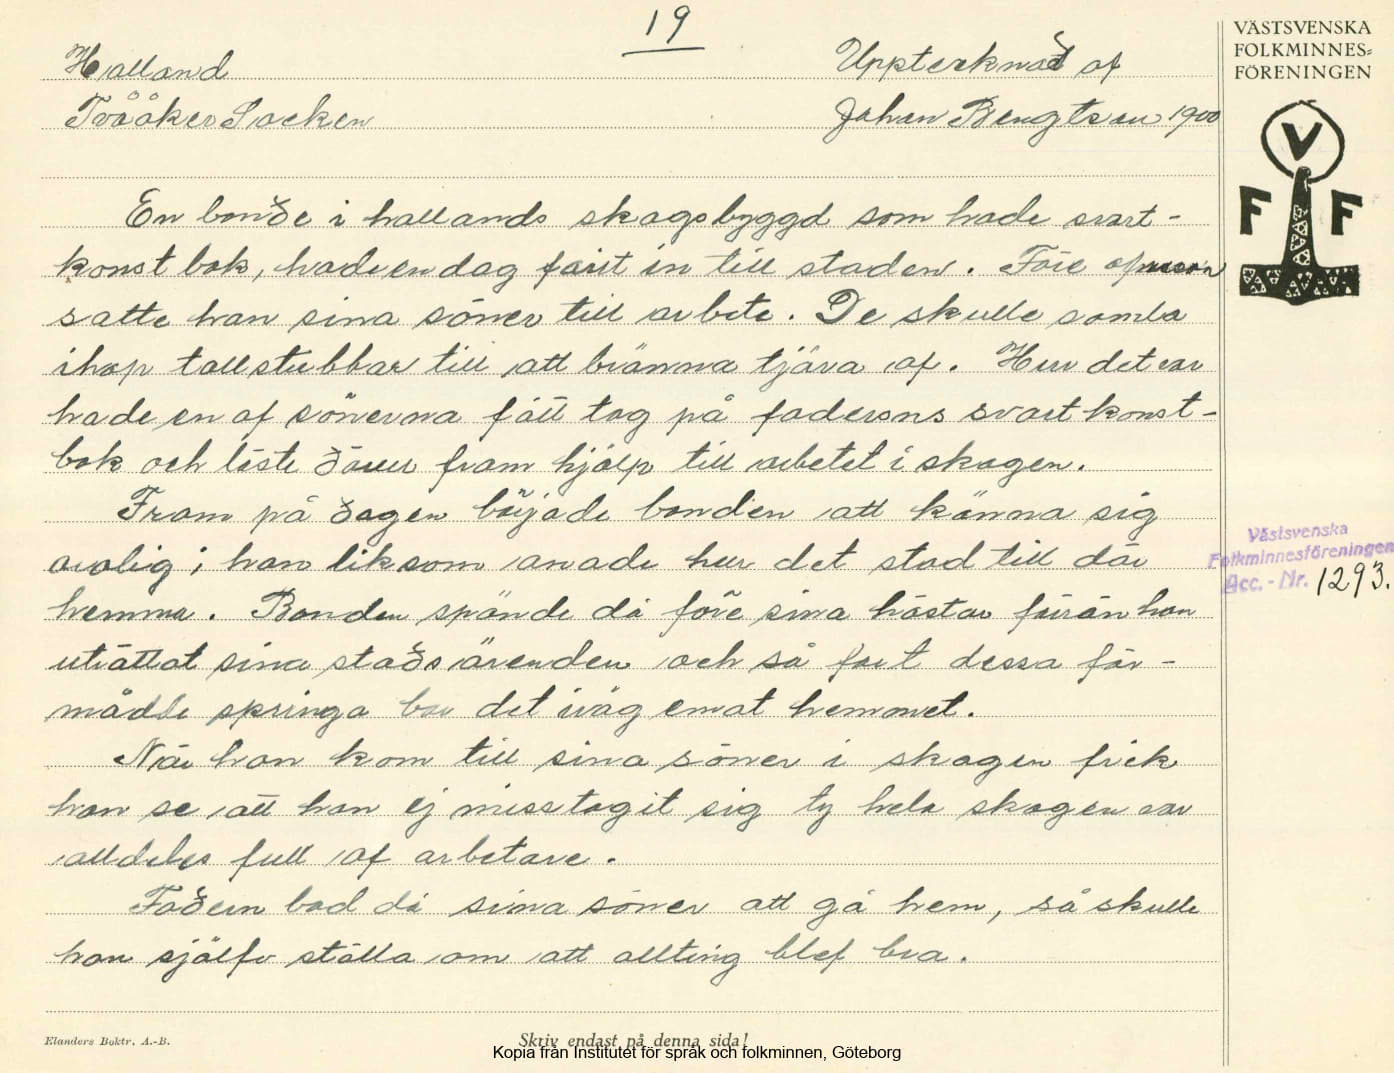 19
Halland
Uppteeknad af
Tvååker Socken
Johan Bengtson 1900
En bonde i hallands skogsbyggd som hade svart-
konst bok, hade en dag farit in till staden. Före
satte han sina söner till arbete. De skulle samla
ihop tallstubbar till att bränna tjära af. Hur det var
hade en af sönerna fått tag på faderns svart konst-
bok och läste fram hjälp till arbetet i skogen.
Fram på dagen började bonden att känna sig
orolig; han liksom anade hur det stod till där
hemma. Bonden spände då före sina hästar förrän han
uträttat sina stads ärenden och så fort dessa för-
mådde springa bar det iväg emot hemmet.
När han kom till sina söner i skogen fick
han se att han ej misstagit sig ty hela skogen var
alldeles full af arbetare.
Fadern bad då sina söner att gå hem, så skulle
han sjölfv ställa om att allting blef bra.
VÄSTSVENSKA
FOLKMINNES=
FÖRENINGEN
V
F F
Västsvenska
Folkminnesföreningen
Acc. - Nr. 1293.
Elanders Boktr. A.-B.
Skriv endast på denna sida!
Kopia från Institutet för språk och folkminnen, Göteborg